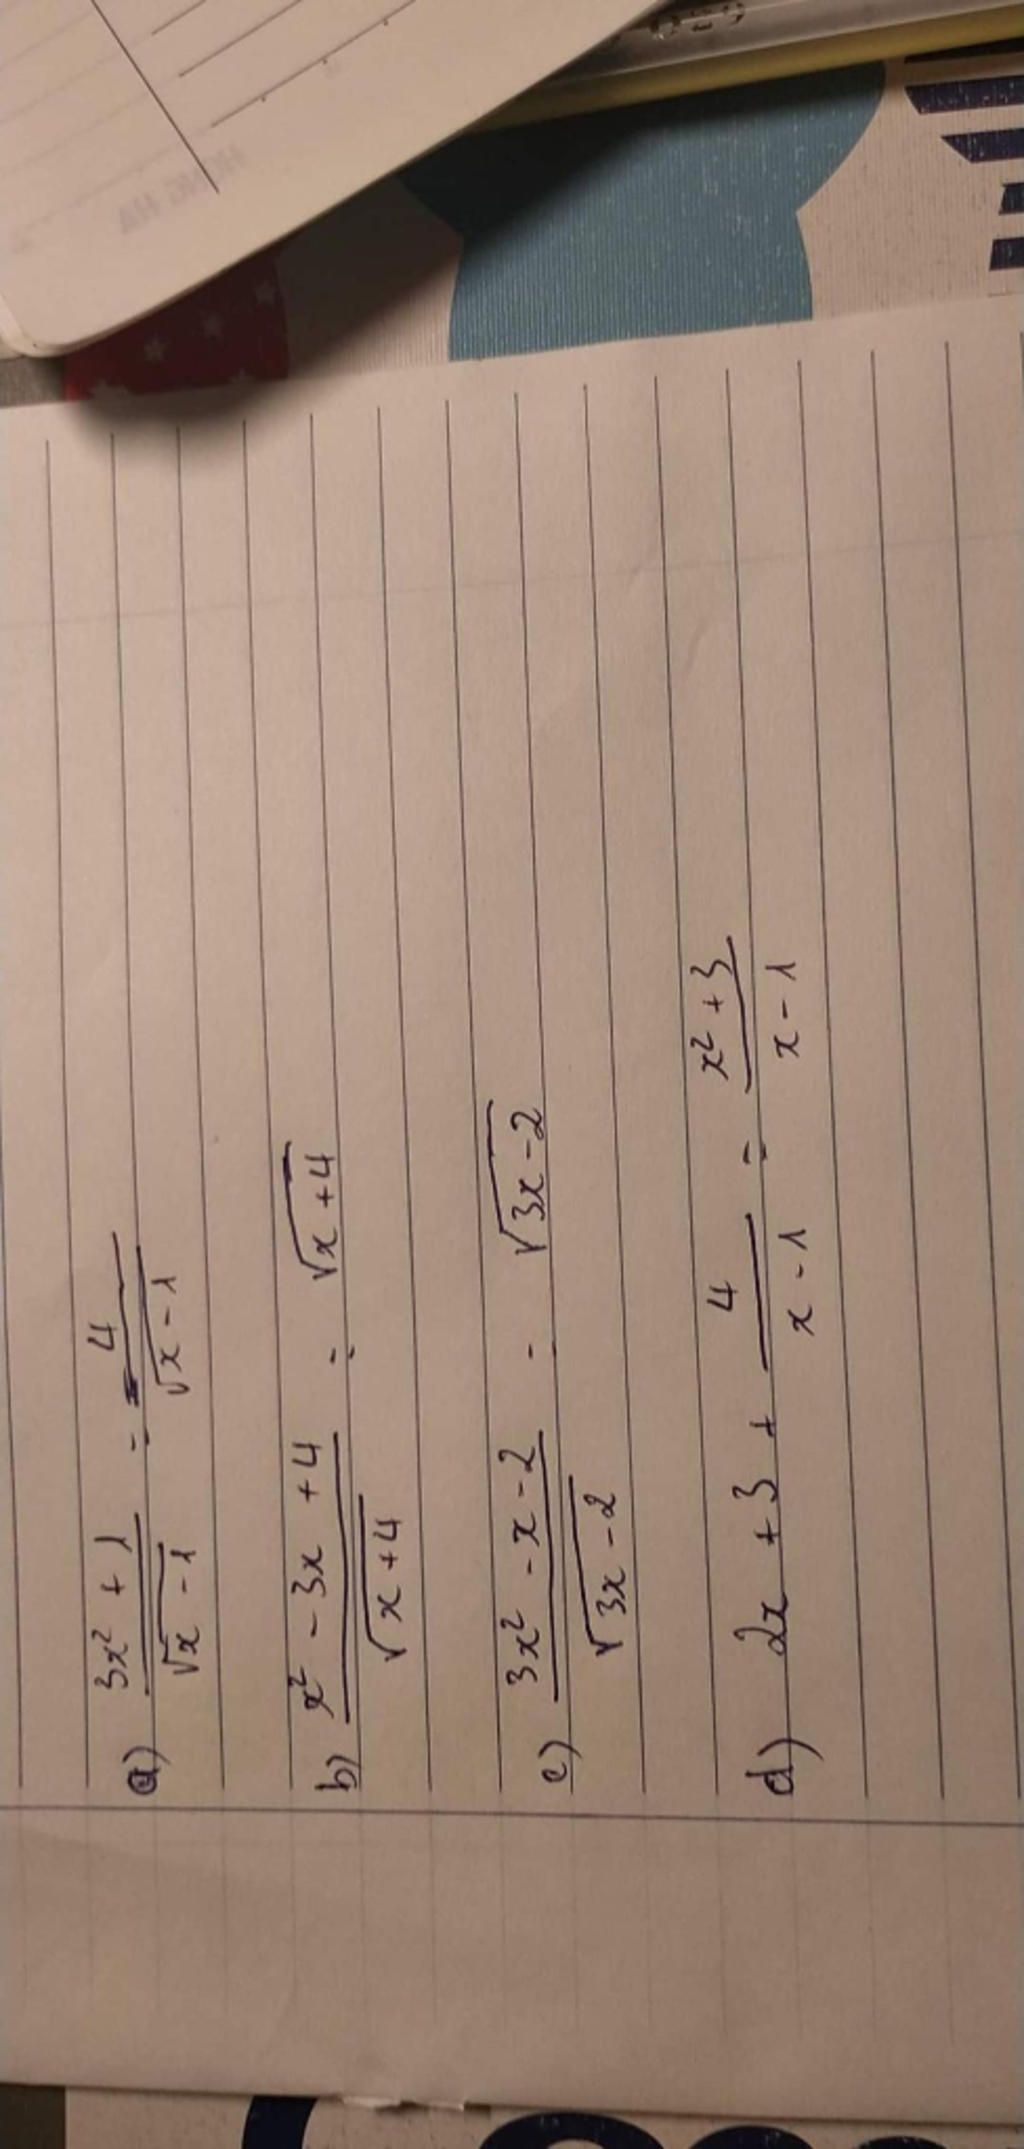 a) (3x² + 1)/(√x - 1) = 4/√(x - 1)
b) (x² - 3x + 4)/√(x + 4) = √(x + 4)
c) (3x² - x - 2)/√(3x - 2) = √(3x - 2)
d) 2x + 3 + 4/(x - 1) = (x² + 3)/(x - 1)
HỒNG HÀ